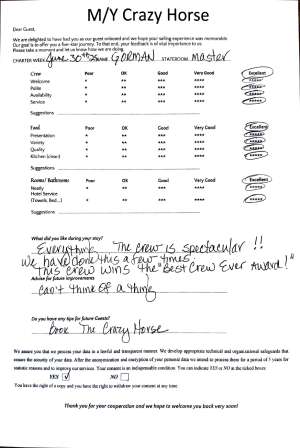 M/Y Crazy Horse
Dear Guest,
We are delighted to have had you as our guest onboard and we hope your sailing experience was memorable.
Our goal is to offer you a five-star journey. To that end, your feedback is of vital importance to us.
Please take a moment and let us know how we are doing.
CHARTER WEEK June 30th NAME GORMAN STATEROOM master
Crew Poor OK Good Very Good Excellent
Welcome * ** *** **** *****
Polite * ** *** **** *****
Availability * ** *** **** *****
Service * ** *** **** *****
Suggestions
Food Poor OK Good Very Good Excellent
Presentation * ** *** **** *****
Variety * ** *** **** *****
Quality * ** *** **** *****
Kitchen (clean) * ** *** **** *****
Suggestions
Rooms/ Bathrooms Poor OK Good Very Good Excellent
Neatly * ** *** **** *****
Hotel Service * ** *** **** *****
(Towels, Bed...)
Suggestions
What did you like during your stay?
Everything. The crew is spectacular!!
We have done this a few times.
This crew wins the "Best Crew Ever Award!"
Advice for future improvements
Can't think of a thing
Do you have any tips for future Guests?
Book The Crazy Horse
We assure you that we process your data in a lawful and transparent manner. We develop appropriate technical and organizational safeguards that
ensure the security of your data. After the anonymization and encryption of your personal data we intend to process them for a period of 5 years for
statistic reasons and to improve our services. Your consent is an indispensable condition. You can indicate YES or NO at the ticked boxes:
YES √ NO
You have the right of a copy and you have the right to withdraw your consent at any time.
Thank you for your cooperation and we hope to welcome you back very soon!